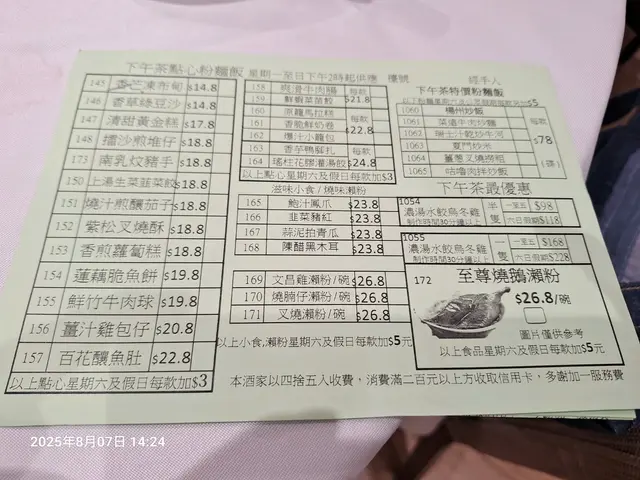 下午茶點心粉麵飯 星期一至日下午2時起供應 樓號 經手人
145 香芒凍布甸 $14.8
146 香草綠豆沙 $14.8
147 清甜黃金糕 $17.8
148 擂沙煎堆仔 $18.8
173 南乳炆豬手 $18.8
150 上湯生菜韮菜餃 $18.8
151 燒汁煎釀茄子 $18.8
152 紫松叉燒酥 $18.8
153 香煎蘿蔔糕 $18.8
154 蓮藕脆魚餅 $19.8
155 鮮竹牛肉球 $19.8
156 薑汁雞包仔 $20.8
157 百花釀魚肚 $22.8
以上點心星期六及假日每款加$3
158 牛肉腸 每款
159 鮮蝦菜苗餃 $21.8
160 馬拉糕
161 香脆鮮奶卷 每款
162 爆汁小籠包 $22.8
163 香芋鴨腳扎 每款
164 瑤柱花膠灌湯餃 $24.8
以上點心星期六及假日每款加$3
滋味小食/燒味瀨粉
165 鮑汁鳳爪 $23.8
166 韮菜豬紅 $23.8
167 蒜泥拍青瓜 $23.8
168 陳醋黑木耳 $23.8
169 文昌雞瀨粉/碗 $26.8
170 燒腩仔瀨粉/碗 $26.8
171 叉燒瀨粉/碗 $26.8
以上小食,瀨粉星期六及假日每款加$5元
下午茶特價粉麵飯
以下粉麵星期六及公眾假期每款另加$5
1060 楊州炒飯
1061 菜遠牛肉炒麵 每款
1062 瑞士汁乾炒牛河
1063 廈門炒米 $78
1064 薑蔥叉燒撈粗
1065 咕嚕肉拌炒飯
下午茶最優惠
1054 濃湯水餃烏冬雞 半隻 一至五 $98
制作時間30分鐘以上 六日假期 $118
1055 濃湯水餃烏冬雞 一隻 一至五 $168
制作時間30分鐘以上 六日假期 $228
172 至尊燒鵝瀨粉
$26.8/碗
圖片僅供參考
以上食品星期六及假日每款加$5元
本酒家以四捨五入收費，消費滿二百元以上方收取信用卡，多謝加一服務費
2025年8月07日 14:24